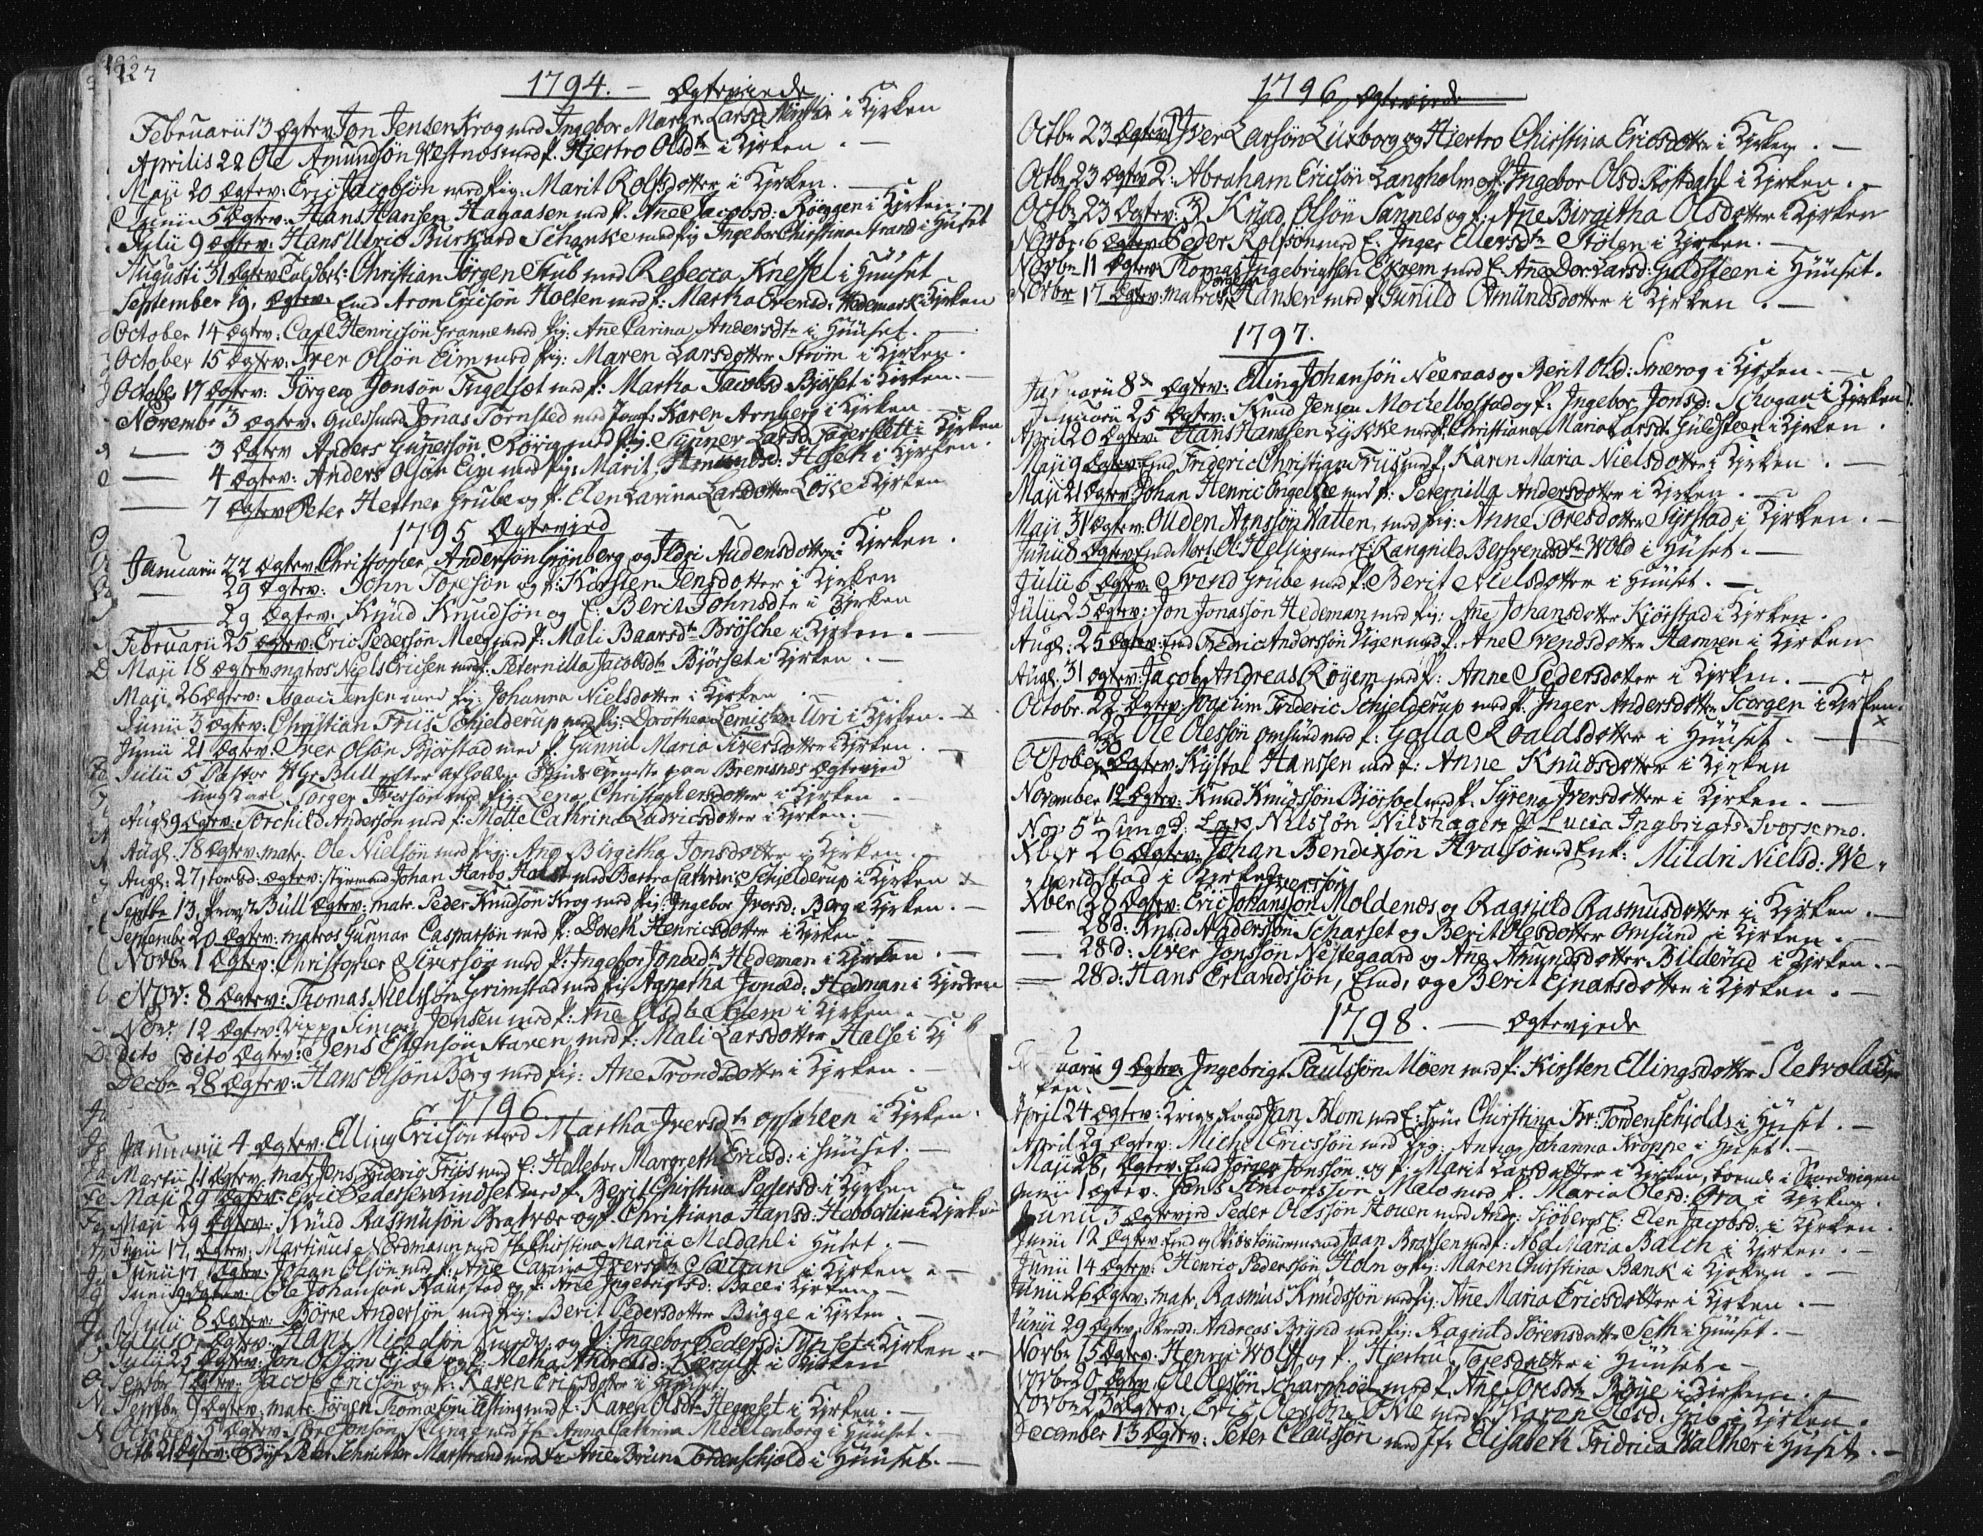 127
1794. — Ægteviede
Februarii 13 Ægtev Jon Jensen Krog med Ingebor Larsd i Kirken
Aprilis 22 Ole Amundsøn Westnes med P. Hiertro Olsdtr i Kirken. —
Maji 20 Ægtev: Eric Jacobsøn med Pig: Marit Rolfsdotter i Kirken. —
Junii 5 Ægtev: Hans Hansen Hagaasen med P. Ane Jacobsd: Røggen i Kirken.
Julii 9 Ægtev: Hans Ulric Burchard Schanke med Pig Ingebor Christina Strand i Huset
Augusti 31 Ægtev Christian Jørgen Stub med Rebecca Kneffel i Huuset
September 19, Ægtev: Aron Ericsøn Holten med P: Martha Evensd: Hedemark i Kirken
October 14 Ægtev: Carl Henricsøn Granne med Pig: Ane Carina Andersdtr i Huuset. —
October 15 Ægtev: Iver Olsøn Eim med Pig: Maren Larsdotter Strøm i Kirken.
October 17 Ægtev: Jørgen Jonsøn Tngelset med P: Martha Jacobsd Bjørset i Kirken. —
Novembr 3 Ægtev. Guldsmed Jonas Tornsted med Jomf: Karen Arnberg i Kirken
— 3 Ægtev Anders Gunersøn Korig med Pig: Sunnev Larsd Fagerslett i Kirken
— 4 Ægtev: Anders Olsøn Eim med Pig: Marit Amundsd: Hoseth i Kirken.
— 7 Ægtev Peter Hertner Grube og P. Elen Larina Larsdotter Losse i Kirken
1795 Ægteviед
Januarii 22 Ægtev Christopher Andersøn Grønberg og Ildri Audensdotter i Kirken.
— 29 Ægtev: John Toresøn og P: Kirsten Jensdotter i Kirken
— 29 Ægtev: Knud Knudsøn og E: Berit Johnsdtr i Kirken
Februarii 25 Ægtev: Eric Pedersøn Meeg med P: Mali Baarsdtr Brøsche i Kirken. —
Maji 18 Ægtev matros Niels Ericsen med P: Peternilla Jacobsdtr Bjørset i Kirken. —
Maji 26 Ægtev: Isaac Jensen med Pig: Johanna Nielsdotter i Kirken
Junii 3 Ægtev: Christian Friis Schjelderup med Pig: Dorothea Lemichen Uri i Kirken. — x
Junii 21 Ægtev: Iver Olsøn Bjørstad med P. Gunnil Maria Siversdotter i Kirken.
Julii 5 Pastor H Gr: Bull efter aflodlige Guds tjeneste paa Bremsnes Ægtevied
ungkarl Torger Iversøn med Pig: Lena Christophersdotter i Kirken —
Augl 9 Ægtev: Torchild Andersøn med P: Mette Cathrina Ladvicsdotter i Kirken. —
Augl. 18 Ægtev. matr. Ole Nielsøn med Pig: Ane Birgitha Jonsdotter i Kirken —
Augl. 27, Ægtev: styrmand Johan Harbo Holst med Cathrin: Schjelderup i Kirken x
Septbr 13. Provst Bull Ægtev: matr. Peder Knudsøn Krog med Pig: Ingebor Iversd: Berg i Kirken. —
Septembr 20 Ægtev: matros Gunnar Caspersøn med P: Doreth Henricsdotter i Kirken
Novbr 1 Ægtev: Christopher Siversøn med P: Ingebor Jonædtr Hedeman i Kirken —
Nov: 8 Ægtev: Thomas Nielsøn Grimstad med Pig: Agnetha Jonæd: Hedman i Kirken
Nov: 12 Ægtev. Simon Jensen med P: Ane Olsd i Kirken
dito dito Ægtev: Jens Estensøn Staren med P: Mali Larsdotter Halse i K
Decbr 28 Ægtev: Hans Olsøn Berg med Pig: Ane Trondsdotter i Kirken.
1796.
Januarii 4 Ægtev: Elling Ericsøn med Martha Iversdtr Opsahlen i Kirken.
Martii 11 Ægtev: matr Jens Frideric Friis med E: Hellebor Margreth Ericsd: i Huuset. —
Maji 29 Ægtev: Eric Pedersen Rindset med P Berit Christina Pedersd: i Kirken
Maji 29 Ægtev: Knud Rasmusøn Bratvær og P. Christiana Hansd: Hebberlin i Kirken
Junii 17, Ægtev: Martinus Nordmann med Jfr Christina Maria Meldahl i Huset. —
Junii 17 Ægtev: Johan Olsøn med P: Ane Carina Iversdtr i Kirken
Junii Ægtev: Ole Johansøn Kaarstad og P: Ane Ingebrigtsd: Bace i Kirken —
Julii 8 Ægtev: Børre Andersøn med Pig: Berit Pedersdotter Brigge i Kirken —
Julii 10 Ægtev: Hans og P: Ingebor Pedersd: i Kirken
Julii 25 Ægtev: Jon Olsøn Eide og P: Metha Andreasd: Kierulf i Kirken
Septbr Ægtev: Jacob Ericsøn og P: Karen Ericsdotter i
Septbr 9 Ægtev. matr Jørgen Thomæsøn med P: Karen Olsdtr Heggeset i Kirken. —
October Ægtev: Jonsøn med Jfr Anna Cathrina Mecklenborg i Huuset. —
Octb 21 Ægtev: Peter Schnitter Marstrand med Jfr Ane Brun Tordenschjold i Huuset. —
1796, Ægteviede
Octbr 23 Ægtev Iver Larsøn Luxborg og Hiertro Christina Ericsdotter i Kirken. —
Octbr 23 Ægtev 2: Abraham Ericsøn Langholm og P. Ingebor Olsd: Røstdahl i Kirken. —
Octbr 23 Ægtev: 3 Knud Olsøn Sannes og P: Ane Birgitha Olsdotter i Kirken
Novbr 6 Ægtev: Peder Rolfsøn med E. Inger Ellersdtr Stølen i Kirken. —
Novbr 11 Ægtev Thomas Ingebrigtsen Ekrem med E: Ane Dor: Larsd: Guldsteen i Huuset.
Novbr 17 Ægtev: matros Hansen med P Gunild Amundsdotter i Kirken. —
1797.
Januarii 8 Ægtev: Elling Johansøn Neeraas og Berit Olsd: Smevog i Kirken. —
Januarii 25 Ægtev: Knud Jensen Mochelbostad og P. Ingebor Jonsd: Schogan i Kirken
April 20 Ægtev: Hans Hansen Lykke med P. Christiana Maria Larsd: Guldsteen i Kirken
Maji 9 Ægtev End Frideric Christian Friis med P. Karen Maria Nielsdotter i Kirken. —
Maji 21 Ægtev Johan Henric Engelsee med P: Peternilla Andersdotter i Kirken. —
Maji 31 Ægtev: Ollden Arnssøn Watten, med Pig: Anne Toresdotter Fyrstad i Kirken. —
Junii 8 Ægtev Ole Helsing med E: Rangnild Wold i Huset. —
Julii 6 Ægtev: Svend Grube med P. Berit Nielsdotter i Huuset. —
Julii 25 Ægtev: Jon Jonassøn Hedeman med Pig: Ane Johansdotter Kjørstad i Kirken.
Augl: 25 Ægtev: End Fredric Anderssøn Vigen med P: Ane Svendsdotter Hamnen i Kirken
Augl. 31 Ægtev: Jacob Andreas Røyem med P: Anne Pedersdotter i Kirken. —
Octobr. 22 Ægtev: Joachim Frideric Schjelderup med P. Inger Andersdotter Storgen i Kirken. x
— 22 Ole Olessøn Omsund med P: Golla Roaldsdotter i Huuset. —
October 30 Ægtev Kristal Hanssen med P: Anne Knudsdotter i Kirken
November 12 Ægtev: Knud Knudssøn Bjørsvel med P. Syrena Iversdotter i Kirken. —
Nov 5 Ungk: Lars Nilssøn Nilshagen P Lucia Ingbrigtsd Svorsemo.
Xber 26 Ægtev: Johan Bendixsøn Hvalsø med Enk: Mildri Nielsd: We-
vendstad i Kirken
Xber 28 Ægtev: Eric Johanssøn Iverssøn Moldenæs og Ragnild Rasmusdotter i Kirken. —
— 28 d: Knud Anderssøn Scharset og Berit Olesdotter Omsund i Kirken. —
— 28 d: Iver Jonssøn Nestegaard og Ane Amundsdotter Bilderud i Kirken. —
— 28 d: Hans Erlandssøn, Emd, og Berit Ejnarsdotter i Kirken. —
1798. — Ægteviede
uarii 9 Ægtev Ingebrigt Paulssøn Møen med P. Kirsten Ellingsdotter Sletvold i
ken.
April 24 Ægtev: Jan Blom med E: frue Christina Br: Tordenschjolds i Huset. —
April 29 Ægtev: Michel Ericssøn med Pig: Johanna Kroppe i Huset. —
Maji 28, Ægtev: Emd Jørgen Jonssøn og P: Marit Larsdotter i Kirken, boende i Sværdvigen
Junii 1 Ægtev: Jens Simonssøn Melo med P. Maria Olesd: Øra i Kirken
Junii 3 Ægteviед Peder Olessøn Houen med And: Sjøbergs E: Elen Jacobsd: i Kirken.
Junii 12 Ægtev: End og Skibstømmermand Jaan Brassen med P: Abel Maria Balch i Kirken. —
Junii 14 Ægtev: Henric Pederssøn Holm og Pig: Maren Christina Bænk i Kirken. —
Junii 26 Ægtev: matr. Rasmus Knudssøn med Pig: Ane Maria Ericsdotter i Kirken. —
Junii 29 Ægtev. Skredd: Andreas Brynd med Pig: Ragnild Sørensdotter Seth i Huuset. —
Novbr 15 Ægtev: Henric Wolff og P. Hiertru Toresdotter i Huuset —
Novbr 20 Ægtev Ole Olesøn Scharphoel med P. Ane Toresdtr Røye i Kirken. —
Novbr 23 Ægtev: Eric Olessøn med P. Karen Olesd: i Kirken.
December 13 Ægtev: Peter Claussøn med Jfr Elisabeth Fridrica Walther i Huset. —